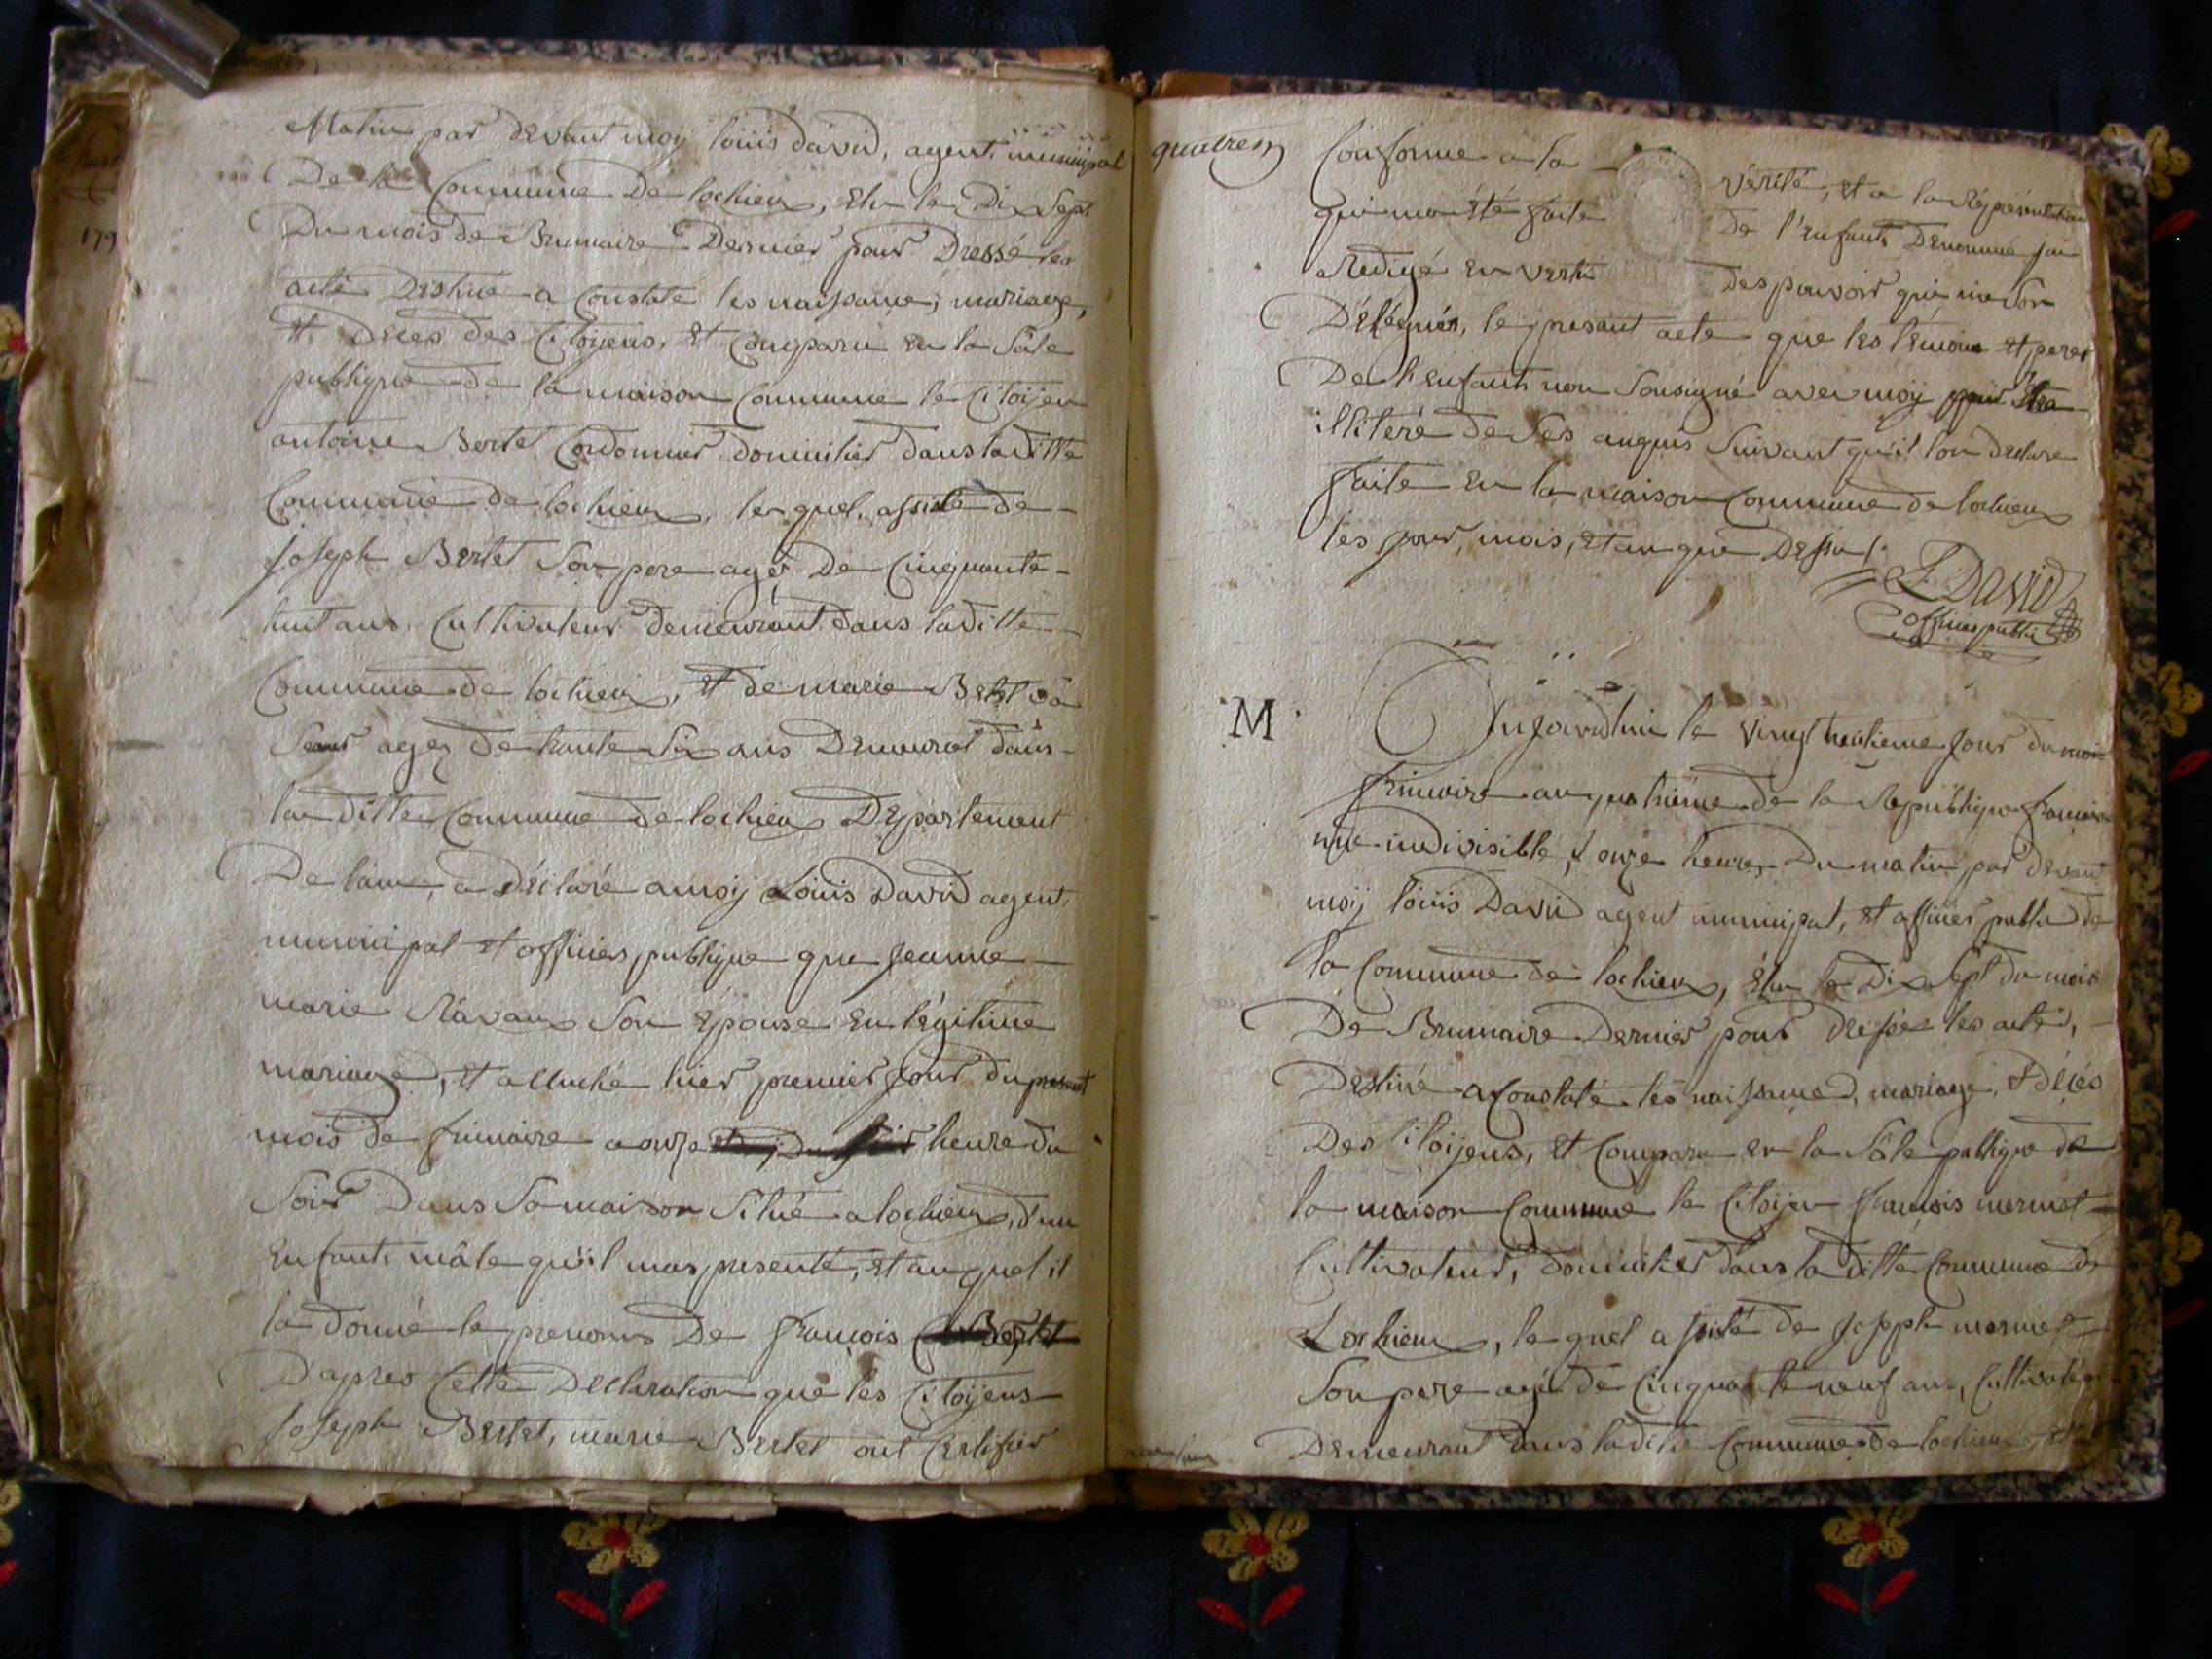 Matin par devant moy loüis david, agent municipal
De la Commune De lochieu, Elu le Dix Sept
Du mois de Brumaire Dernier pour Dressé les
acte Destiné a Constaté les naissance, mariage,
et Deces des Citoijens, et Comparu en la Sâle
publique de la maison Commune le Citoijen
antoine Bertet Cordonnier domicilier dans laditte
Commune de lochieu, le quel, assisté de
Joseph Bertet Son pere agés De Cinquante
huit ans, Cultivateur demeurant dans laditte
Commune de lochieu, et de marie Bertet sa
Seur agés de trante Six ans Demeurat dans
la ditte Commune de lochieu Département
De lain, a déclaré a moij Loüis David agent
municipal et officier publique que Jeanne
marie Ravaux Son Epouse en légitime
mariage, et alluché hier premier Jour du present
mois de frimaire a onze heure du
Soir Dans Sa maison Situé a lochieu, d'un
Enfant mâle qu'il mas presenté, et auquel il
la donné le prenoms De françois
Dapres Cette Declaration que les Citoijens
Joseph Bertet, marie Bertet ont Certifier
179
Conforme a la vérité, et a la Réprésentation
qui ma été faite De l'Enfant Denommé jai
Redigé en vertu des pouvoir qui me Son
Délégués, le present acte que les témoins et peres
De l'Enfant non Sousigné avec moij pour Etre
illiteré de Ses anquis Suivant qu'il l'on déclare
faite En la maison Commune de lochieu
les jour, mois, et an que Dessus.
L. David
officier public
M
Aujourdhui le vingt huitieme Jour du mois
frimaire an quatrieme de la Republique francaise
une indivisible, a onze heures Du matin par devant
moij loüis David agent municipal, et officier public de
la Commune de lochieu, élu le Dix Sept du mois
De Brumaire Dernier pour dressée les acte,
Destiné a Constaté les naissances, mariage, et décés
Des Citoijens, et Comparu en la Sâle publique de
la maison Commune le Citoijen françois mermet
Cultivateur, domicilier dans la ditte Commune de
Lochieu, le quel assisté de Joseph mermet
Son pere agé de Cinquante neuf ans, Cultivateur
Demeurant dans laditte Commune de lochieu, et